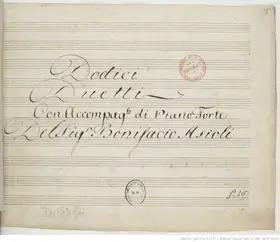 Dodici
Duetti
Con Accompag.to di Piano Forte
Del Sig.r Bonifacio Asioli